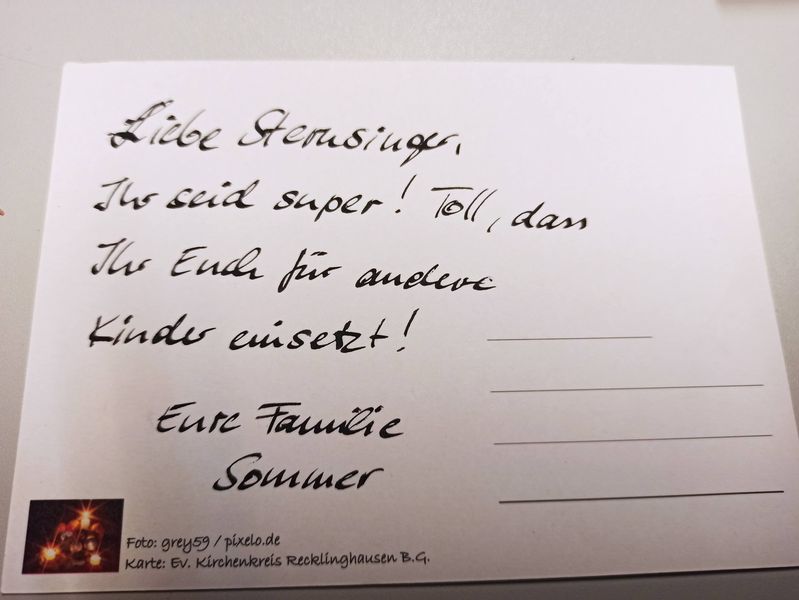 Liebe Sternsinger,
Ihr seid super! Toll, dass
Ihr Euch für andere
Kinder einsetzt!
Eure Familie
Sommer
Foto: grey59 / pixelo.de
Karte: Ev. Kirchenkreis Recklinghausen B.G.